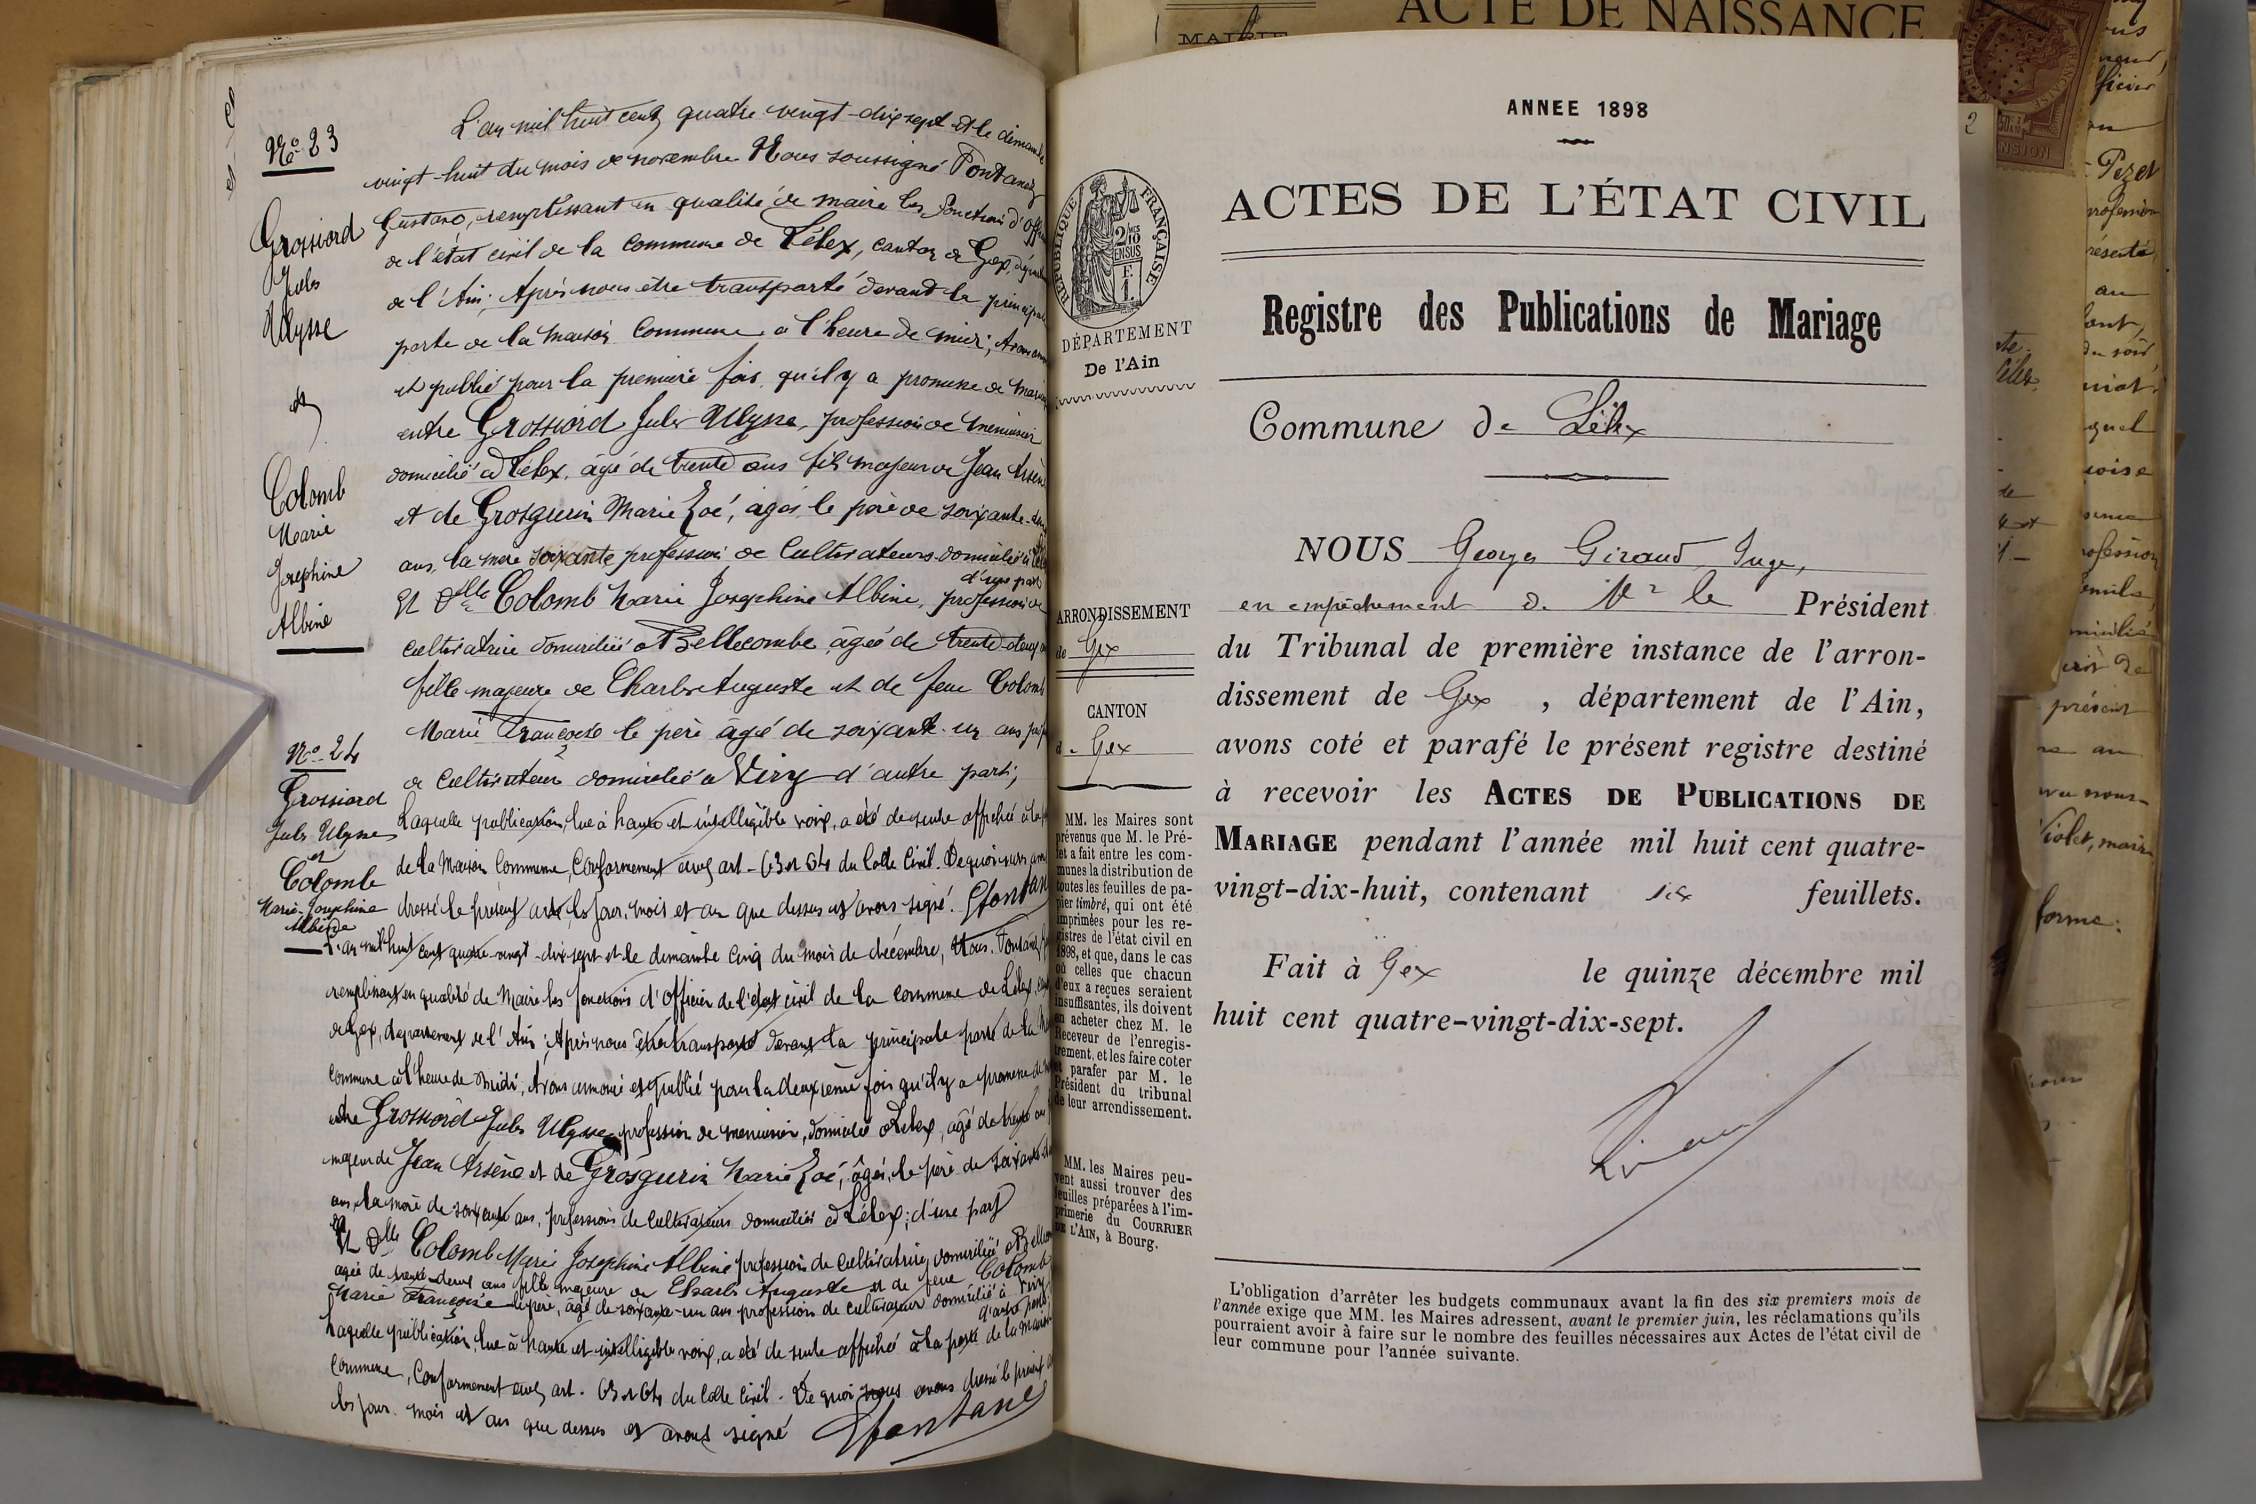 No 23
Grossiord
Jules
Ulysse
et
Colomb
Marie
Josephine
Albine
L'an mil huit cent quatre vingt-dix sept et le dimanche
vingt-huit du mois de novembre Nous soussigné Fontanez
Gustave, remplissant en qualité de maire les fonctions d'
de l'état civil de la commune de Lélex, canton de Gex,
de l'Ain; Après nous être transporté devant la principale
porte de la maison Commune à l'heure de midi; Avons
et publié pour la première fois qu'il y a promesse de
entre Grossiord Jules Ulysse, profession de menuisier
domicilié à Lélex, âgé de trente ans fils majeur de Jean Arsène
et de Grosgurin Marie Zoé, âgés, le père de soixante-
ans, la mère soixante profession de Cultivateurs domiciliés à
d'une part
Et Dlle Colomb Marie Josephine Albine, profession de
cultivatrice domiciliée à Bellecombe, âgée de trente-deux
fille majeure de Charles Auguste et de feue Colomb
Marie Françoise le père âgé de soixante-un ans
de Cultivateur domicilié à Viry d'autre part;
Laquelle publication, lue à haute et intelligible voix, a été de suite affichée à la
de la Maison Commune, Conformement aux art - 63 et 64 du Code Civil. De quoi
dressé le présent acte les jour, mois et an que dessus et avons signé. Gfontan
No 24
Grossiord
Jules Ulysse
et
Colomb
Marie-Josephine
Albine
L'an mil huit cent quatre-vingt-dix-sept et le dimanche cinq du mois de décembre, Nous. Fontanez
remplissant en qualité de Maire les fonctions d'officier de l'état civil de la commune de Lélex,
de Gex, departement de l'Ain; Après nous être transporté devant la principale porte de la
Commune à l'heure de midi, Avons annoncé et publié pour la deuxième fois qu'il y a promesse de
entre Grossiord Jules Ulysse, profession de menuisier, domicilié à Lélex, âgé de trente ans
majeur de Jean Arsène et de Grosgurin Marie Zoé, âgés, le père de soixante
ans, la mère de soixante ans, profession de Cultivateurs domiciliés à Lélex; d'une part
Et Dlle Colomb Marie Josephine Albine profession de cultivatrice, domiciliée à
agée de trente-deux ans fille majeure de Charles Auguste et de feue Colomb
Marie Françoise le père, âgé de soixante-un ans profession de cultivateur domicilié à Viry
d'autre part
Laquelle publication, lue à haute et intelligible voix, a été de suite affichée à la porte de la maison
Commune, Conformement aux art. 63 et 64 du Code Civil. De quoi nous avons dressé le présent
les jour. mois et an que dessus et avons signé Gfontane
ANNEE 1898
ACTES DE L'ÉTAT CIVIL
Registre des Publications de Mariage
Commune de Lélex
RÉPUBLIQUE FRANÇAISE
2/10 EN SUS
DÉPARTEMENT
De l'Ain
ARRONDISSEMENT
de Gex
CANTON
de Gex
MM. les Maires sont
prévenus que M. le Pré-
fet a fait entre les com-
munes la distribution de
toutes les feuilles de pa-
pier timbré, qui ont été
imprimées pour les re-
gistres de l'état civil en
1898, et que, dans le cas
où celles que chacun
d'eux a reçues seraient
insuffisantes, ils doivent
en acheter chez M. le
Receveur de l'enregis-
trement, et les faire coter
et parafer par M. le
Président du tribunal
de leur arrondissement.
MM. les Maires peu-
vent aussi trouver des
feuilles préparées à l'im-
primerie du COURRIER
DE L'AIN, à Bourg.
NOUS Georges Giraud, Juge,
en empêchement de Mr le Président
du Tribunal de première instance de l'arron-
dissement de Gex , département de l'Ain,
avons coté et parafé le présent registre destiné
à recevoir les ACTES DE PUBLICATIONS DE
MARIAGE pendant l'année mil huit cent quatre-
vingt-dix-huit, contenant six feuillets.
Fait à Gex le quinze décembre mil
huit cent quatre-vingt-dix-sept.
L'obligation d'arrêter les budgets communaux avant la fin des six premiers mois de
l'année exige que MM. les Maires adressent, avant le premier juin, les réclamations qu'ils
pourraient avoir à faire sur le nombre des feuilles nécessaires aux Actes de l'état civil de
leur commune pour l'année suivante.
ACTE DE NAISSANCE
MAIRIE
2
Pezet
profession
présenté
au
quel
présent
Violet, maire
forme: